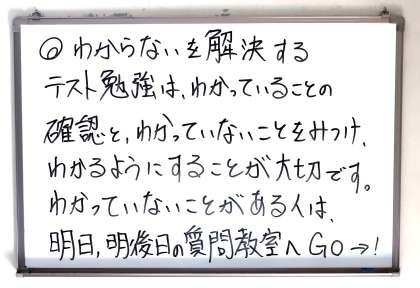 ◎わからないを解決する
テスト勉強は、わかっていることの
確認と、わかっていないことをみつけ、
わかるようにすることが大切です。
わかっていないことがある人は、
明日、明後日の質問教室へGO→!